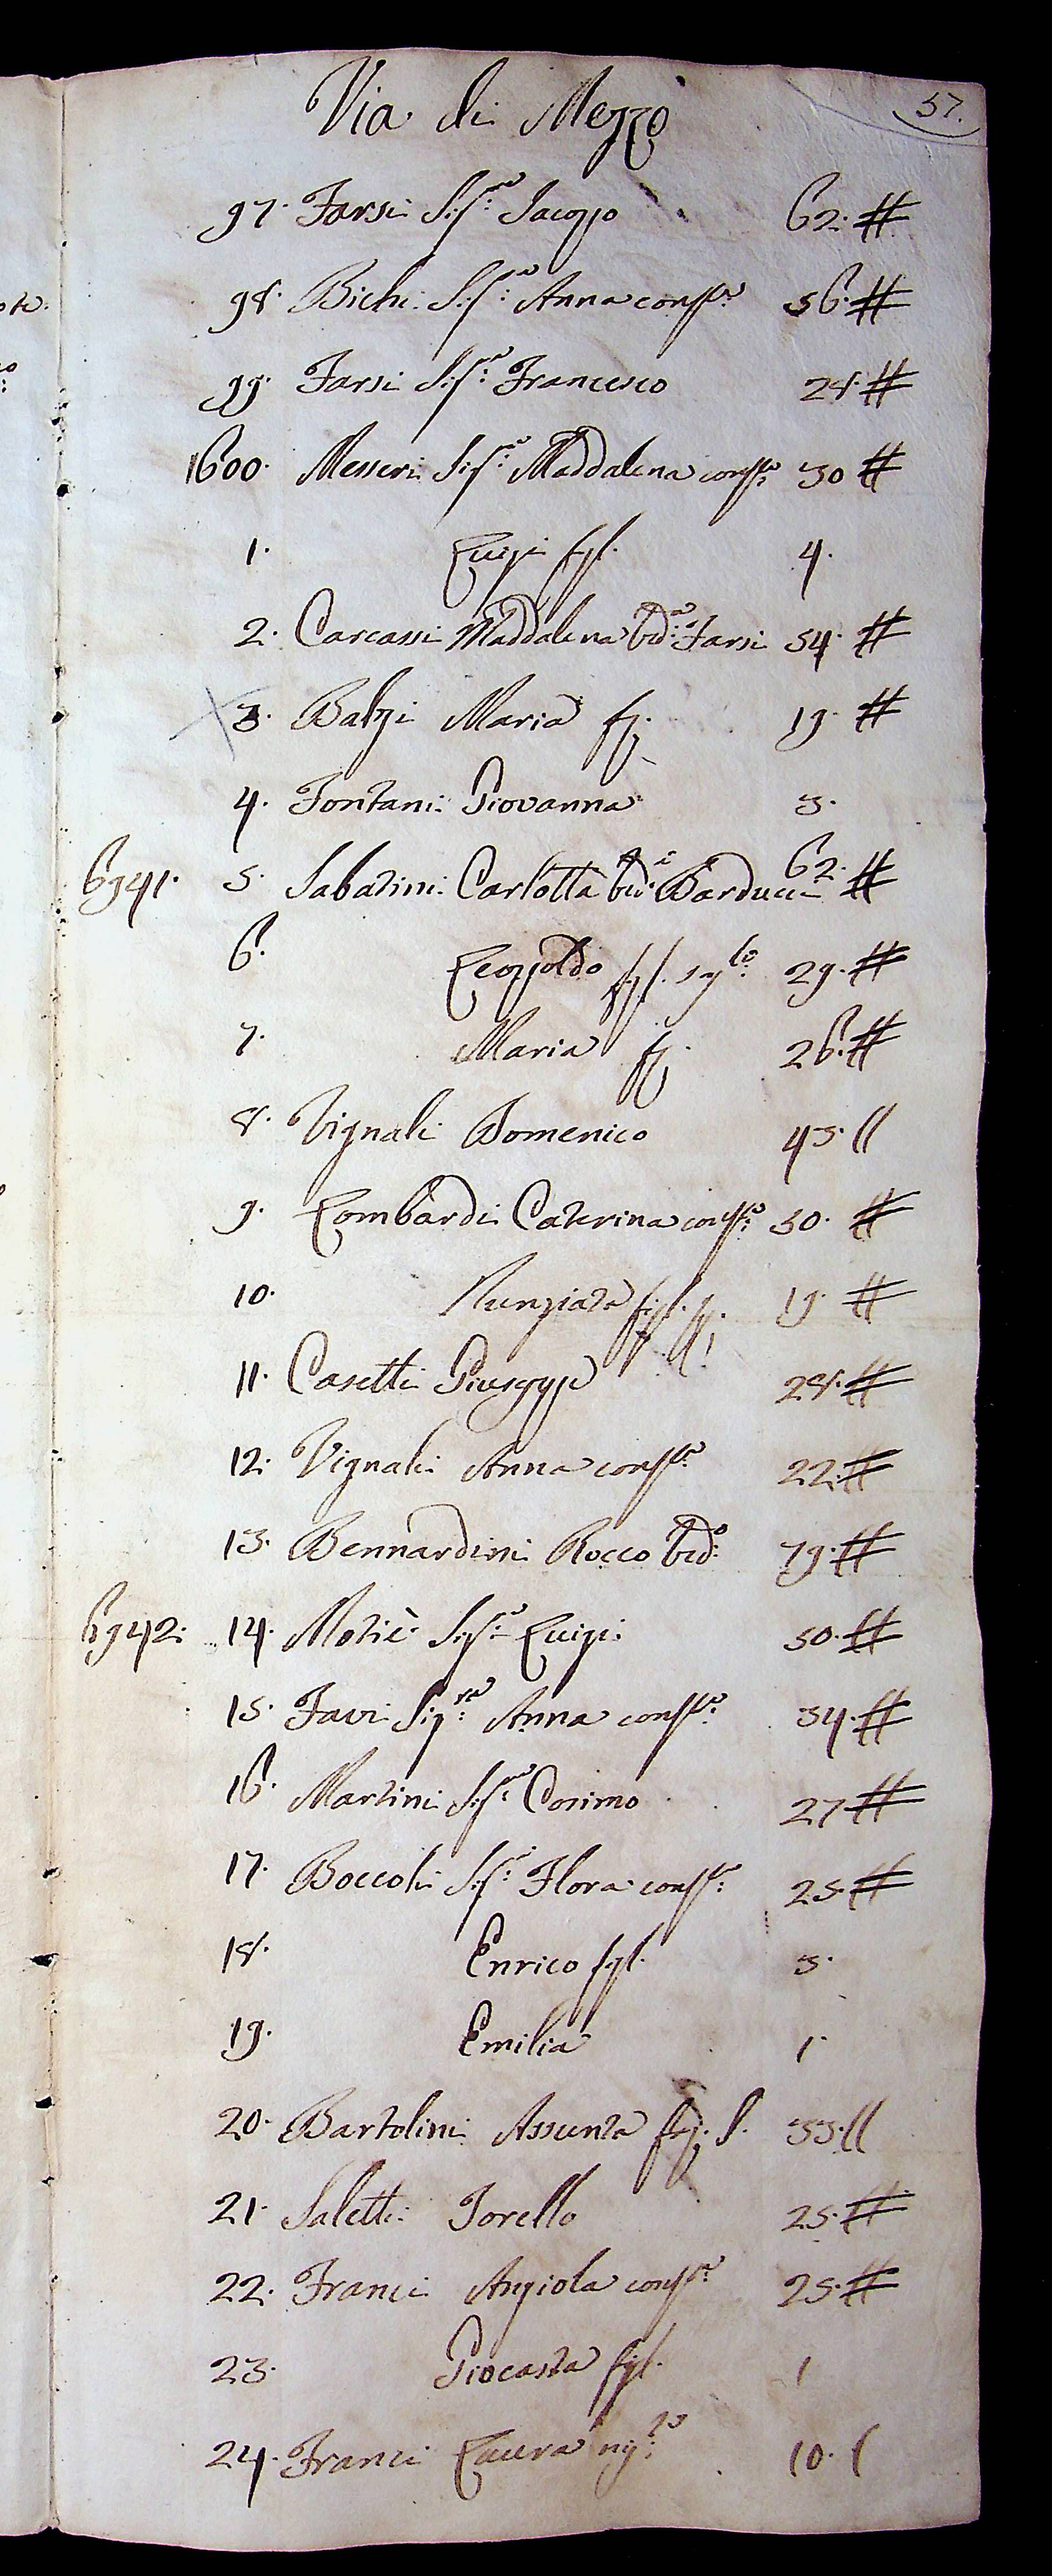 57.
Via di Mezzo
97. Farsi Sig.re Jacopo 62. #
98. Bichi Sig.ra Anna cons.te 56. #
99. Farsi Sig.re Francesco 28. #
1600. Messeri Sig.ra Maddalena cons.te 30 #
1. Luigi figl. 4.
2. Carcassi Maddalena ved.a Farsi 54. #
3. Balzi Maria fg. 19. #
4. Fontani Giovanna 3.
6941. 5. Sabatini Carlotta ved.a Barducci 62. #
6. Leopoldo figl. 29. #
7. Maria fg. 26. #
8. Vignali Domenico 43. //
9. Lombardi Caterina cons.te 50. #
10. Nunziata figl. 19. #
11. Casetti Giuseppe 28. #
12. Vignali Anna cons.te 22. #
13. Bennardini Rocco ved.o 79. #
6942. 14. Motiè Sig.re Luigi 50. #
15. Favi Sig.ra Anna cons.te 34. #
16. Martini Sig.re Cosimo 27 #
17. Boccoli Sig.ra Flora cons.te 25. #
18. Enrico figl. 3.
19. Emilia 1.
20. Bartolini Assunta fg. S. 33. //
21. Saletti Torello 25. #
22. Franci Angiola cons.te 25. #
23. Giocasta figl. 1
24. Franci Laura 10. /